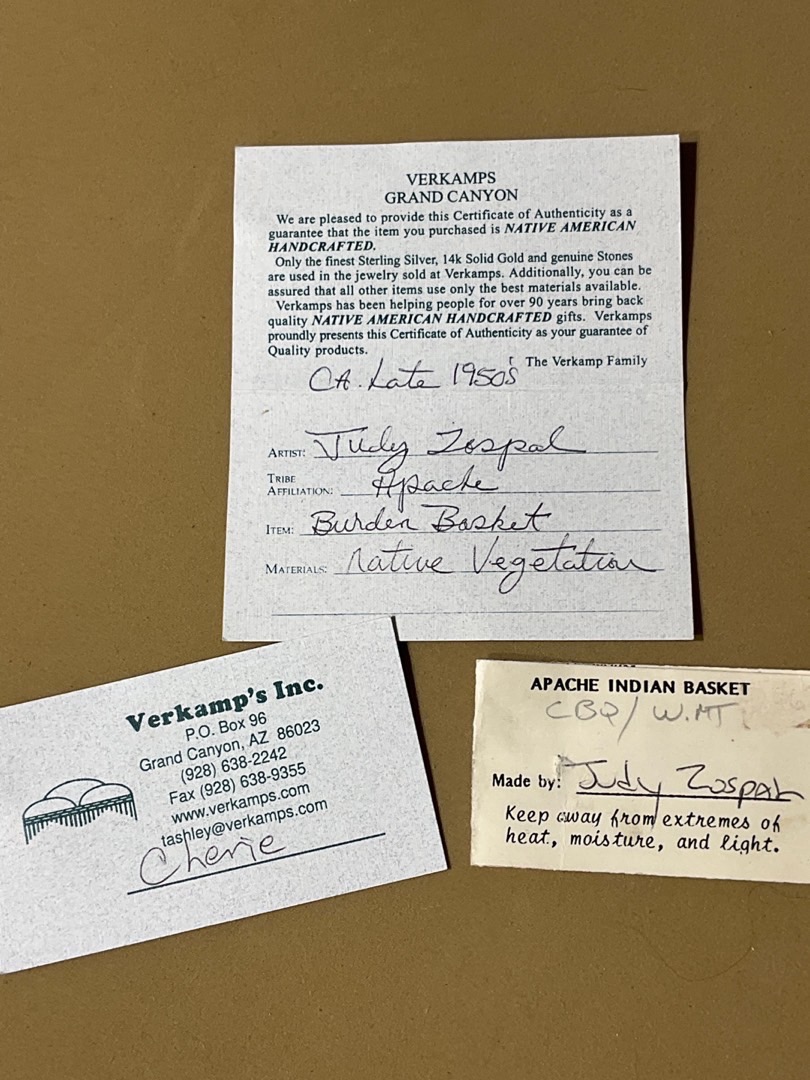 VERKAMPS
GRAND CANYON
We are pleased to provide this Certificate of Authenticity as a
guarantee that the item you purchased is NATIVE AMERICAN
HANDCRAFTED.
Only the finest Sterling Silver, 14k Solid Gold and genuine Stones
are used in the jewelry sold at Verkamps. Additionally, you can be
assured that all other items use only the best materials available.
Verkamps has been helping people for over 90 years bring back
quality NATIVE AMERICAN HANDCRAFTED gifts. Verkamps
proudly presents this Certificate of Authenticity as your guarantee of
Quality products.
The Verkamp Family
CA. Late 1950s
ARTIST: Judy Zospal
TRIBE
AFFILIATION: Apache
ITEM: Burden Basket
MATERIALS: Native Vegetation
Verkamp's Inc.
P.O. Box 96
Grand Canyon, AZ 86023
(928) 638-2242
Fax (928) 638-9355
www.verkamps.com
tashley@verkamps.com
Cherie
APACHE INDIAN BASKET
CBQ/W.MT.
Made by: Judy Zospah
Keep away from extremes of
heat, moisture, and light.